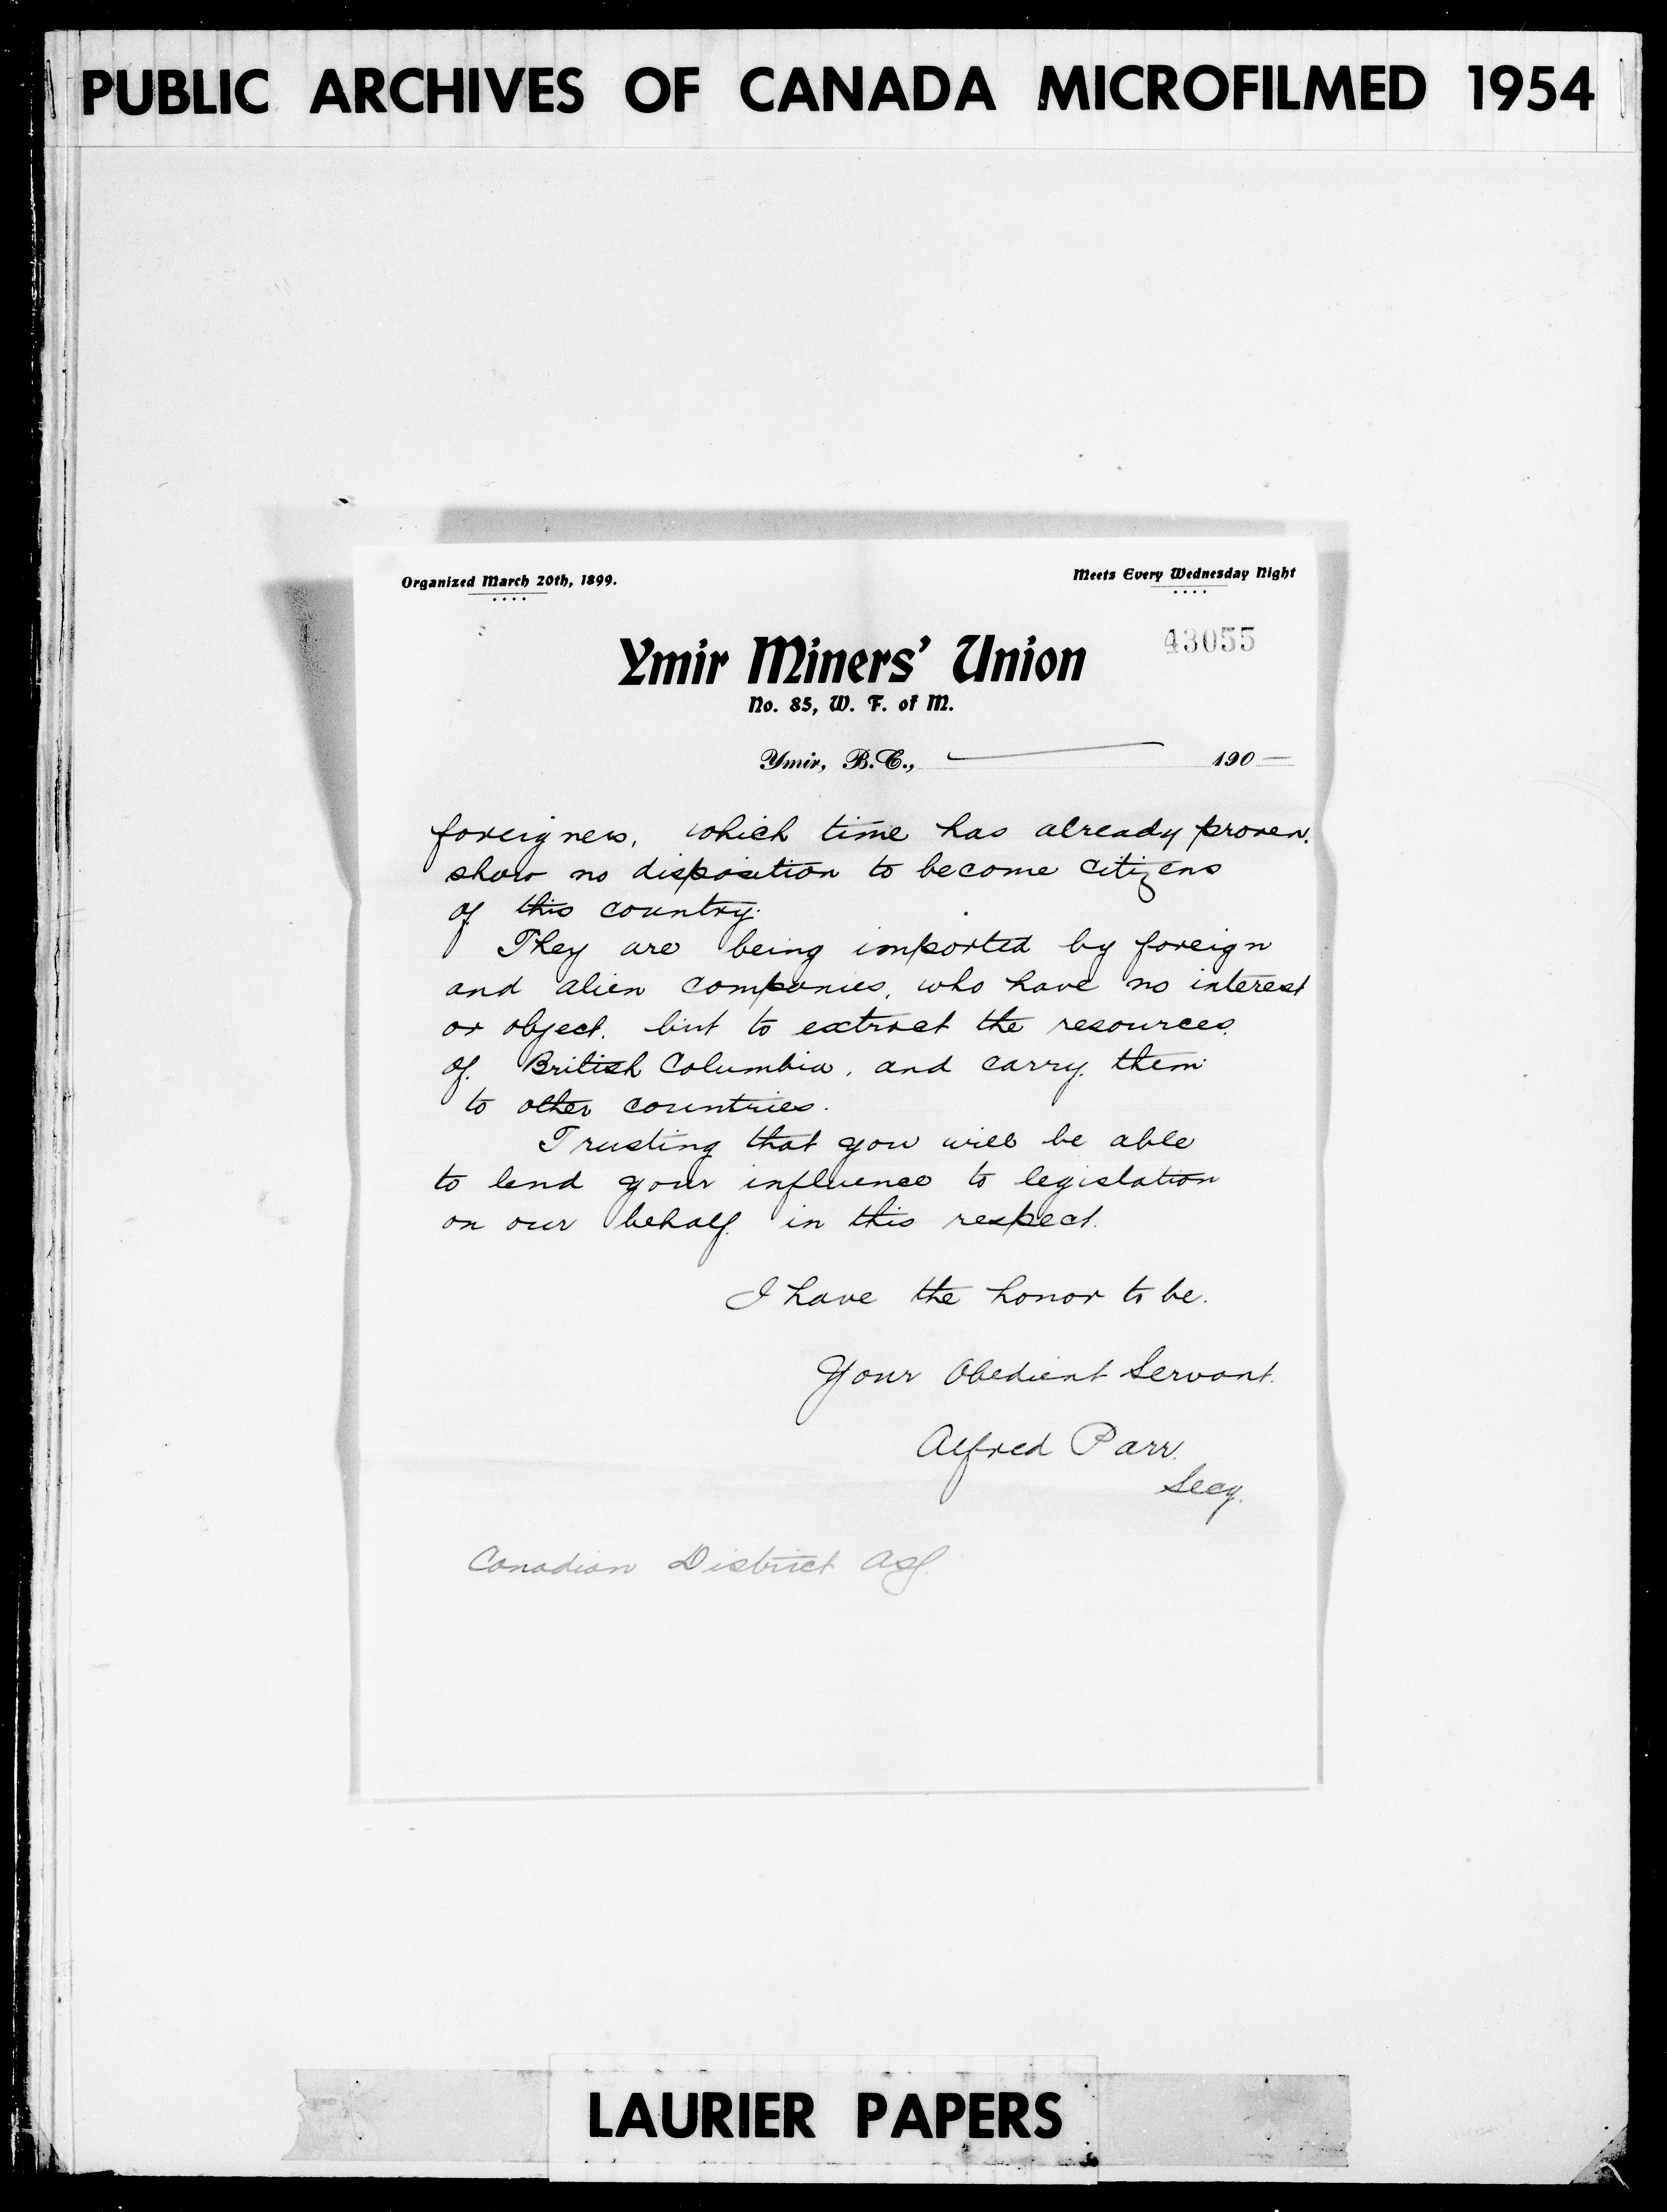 PUBLIC ARCHIVES OF CANADA MICROFILMED 1954
Organized March 20th, 1899.
Meets Every Wednesday Night
43055
Ymir Miners' Union
No. 85, W. F. of M.
Ymir, B.C., 190—
foreigners, which time has already proven.
show no disposition to become citizens
of this country.
They are being imported by foreign
and alien companies, who have no interest
or object. but to extract the resources
of British Columbia, and carry them
to other countries.
Trusting that you will be able
to lend your influence to legislation
on our behalf in this respect.
I have the honor to be.
Your Obedient Servant.
Alfred Parr.
Secy.
Canadian District
LAURIER PAPERS